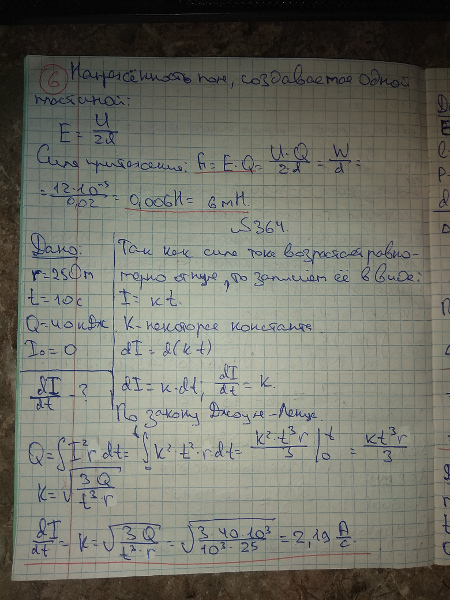 ⑥ Напряжённость поля, создаваемое одной
пластиной:
E = U/2d
Сила притяжения: F₁ = E·Q = U·Q/2d = W/d =
= 12·10⁻⁵/0,02 = 0,006Н = 6 мН.
№364.
Дано: Так как сила тока возрастает равно-
r=25Ом мерно от нуля, то запишем её в виде:
t=10с I = kt.
Q=40кДж K-некоторая константа
I₀=0 dI = d(kt)
dI/dt - ? dI = k·dt; dI/dt = k.
По закону Джоуля-Ленца
Q = ∫I²r dt = ∫₀ᵗ k²·t²·r·dt = k²·t³r/3 |₀ᵗ = kt³r/3
K = √(3Q/t³·r)
dI/dt = k = √(3Q/t³·r) = √(3·40·10³/10³·25) = 2,19 A/c.